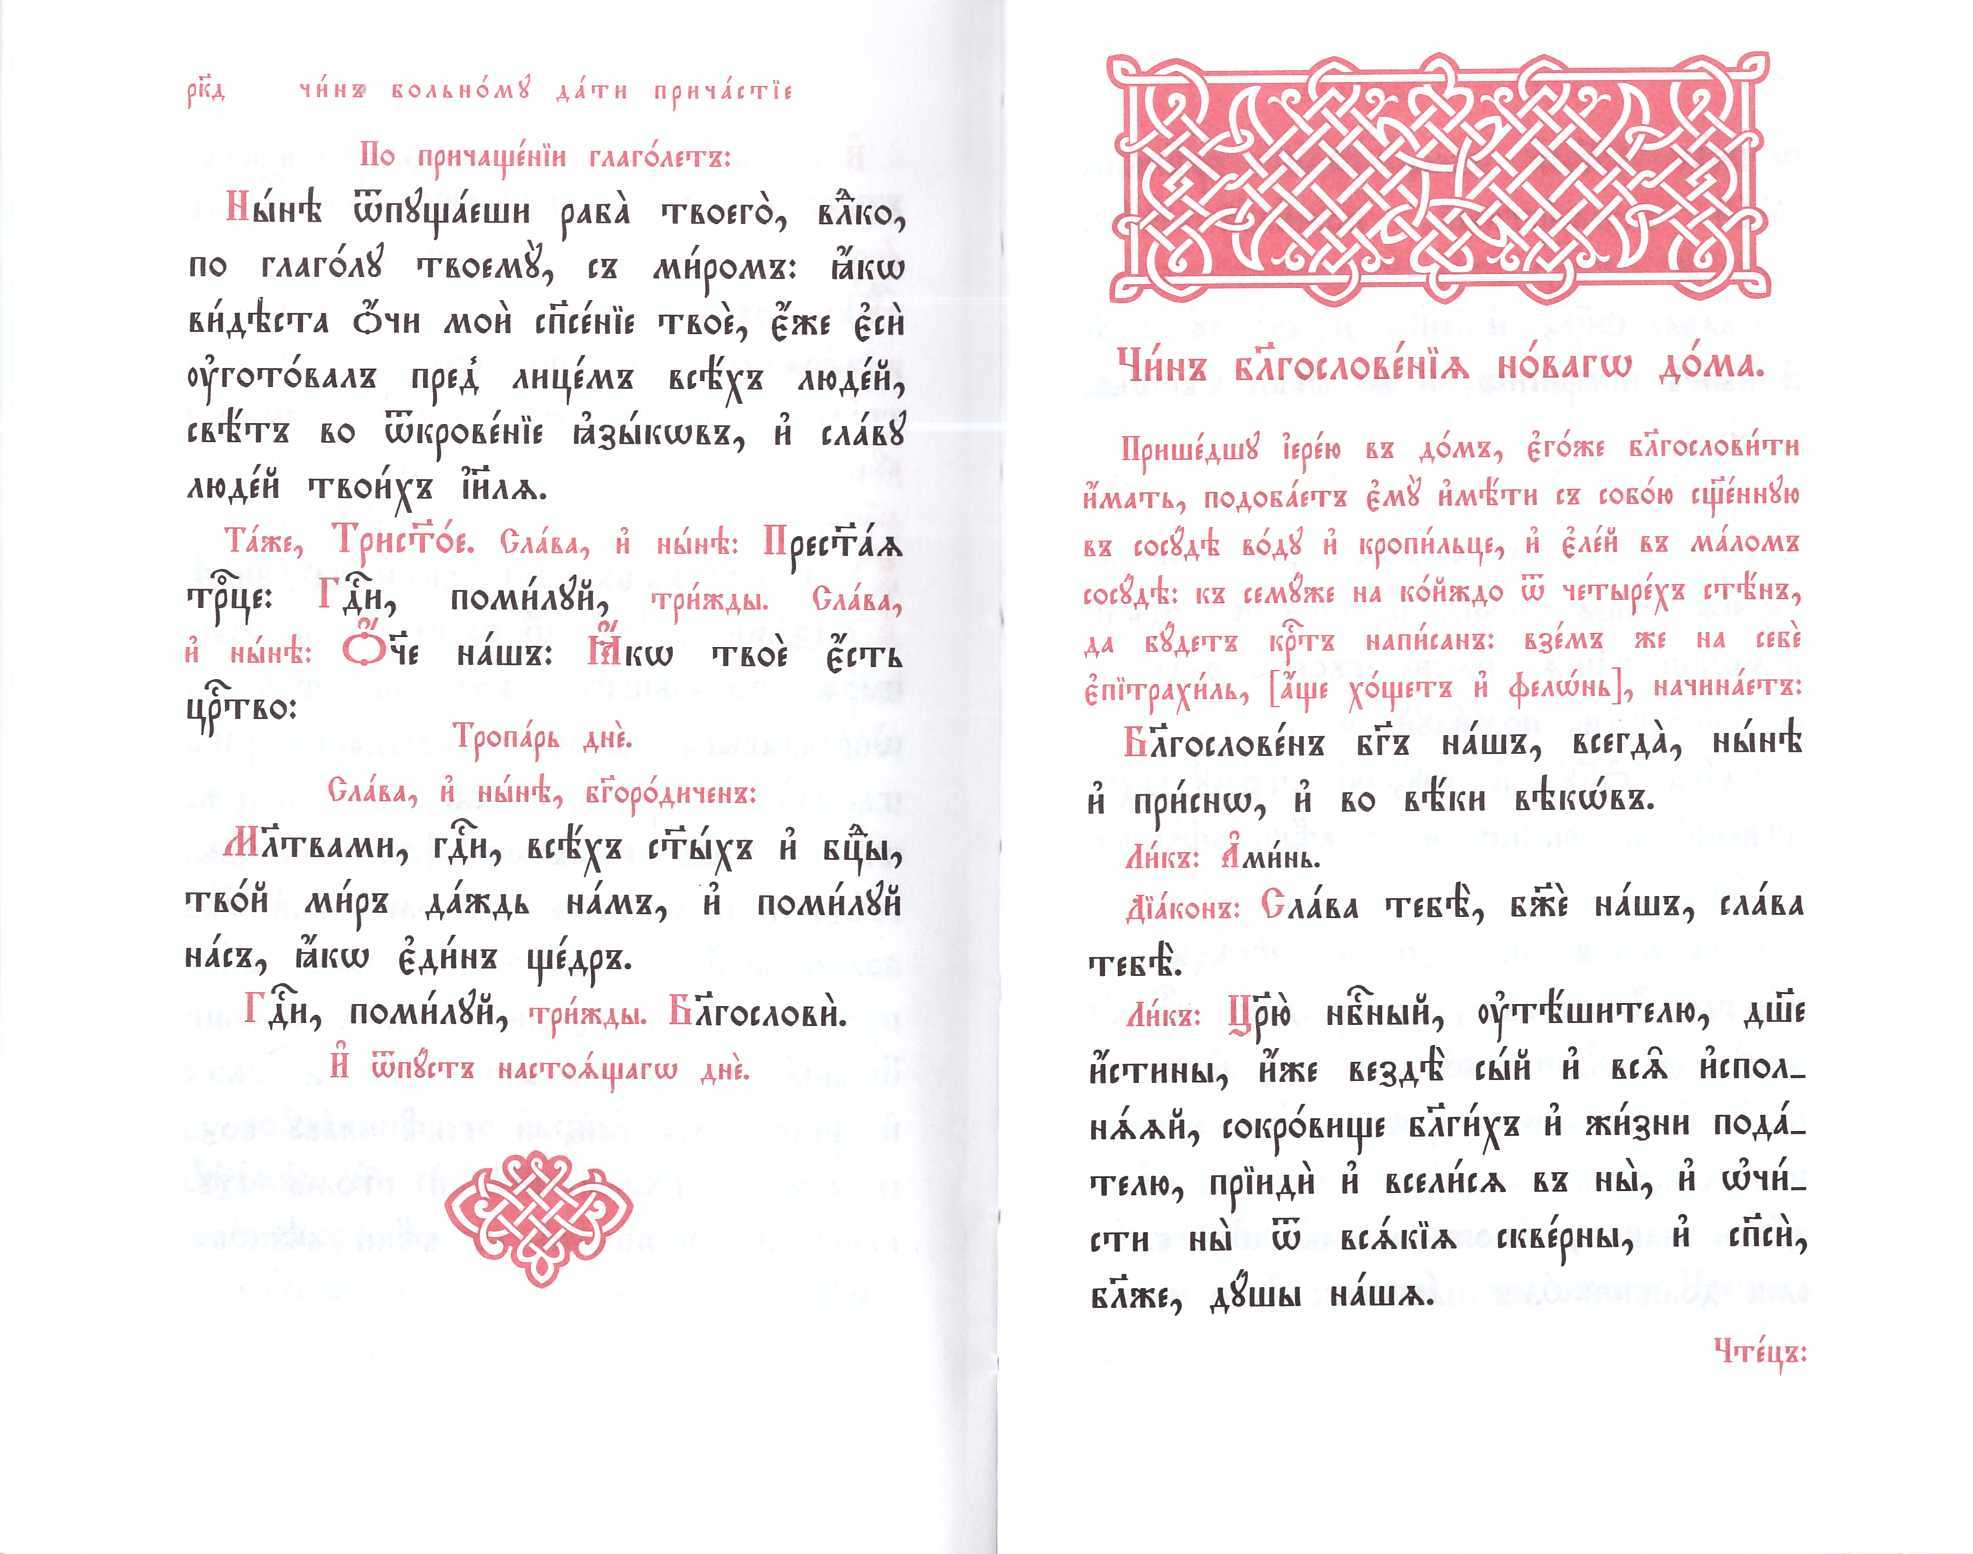 рк҃д чи́нъ больно́мꙋ да́ти прича́стїе
По причаще́нїи глаго́летъ:
Ны́нѣ ѿпꙋща́еши раба̀ твоего̀, влⷣко,
по глаго́лꙋ твоемꙋ̀, съ ми́ромъ: ꙗ҆́кѡ
ви́дѣста ѻ҆́чи моѝ сп҃се́нїе твоѐ, є҆́же є҆сѝ
ᲂу҆гото́валъ пред̾ лице́мъ всѣ́хъ люде́й,
свѣ́тъ во ѿкрове́нїе ꙗ҆зы́кѡвъ, и҆ сла́вꙋ
люде́й твои́хъ і҆и҃лѧ.
Та́же, Трист҃о́е. Сла́ва, и҆ ны́нѣ: Прест҃а́ѧ
трⷪ҇це: Гдⷭ҇и, поми́лꙋй, три́жды. Сла́ва,
и҆ ны́нѣ: Ѻ҆́ч҃е на́шъ: Ꙗ҆́кѡ твоѐ є҆́сть
црⷭ҇тво:
Тропа́рь днѐ.
Сла́ва, и҆ ны́нѣ, бг҃оро́диченъ:
Мл҃твами, гдⷭ҇и, всѣ́хъ ст҃ы́хъ и҆ бцⷣы,
тво́й ми́ръ да́ждь на́мъ, и҆ поми́лꙋй
на́съ, ꙗ҆́кѡ є҆ди́нъ ще́дръ.
Гдⷭ҇и, поми́лꙋй, три́жды. Бл҃гословѝ.
И҆ ѿпꙋ́стъ настоѧ́щагѡ днѐ.
Чи́нъ бл҃гослове́нїѧ но́вагѡ до́ма.
Прише́дшꙋ і҆ере́ю въ до́мъ, є҆го́же бл҃гослови́ти
и҆́мать, подоба́етъ є҆мꙋ̀ и҆мѣ́ти съ собо́ю сщ҃е́ннꙋю
въ сосꙋ́дѣ во́дꙋ и҆ кропи́льце, и҆ є҆ле́й въ ма́ломъ
сосꙋ́дѣ: къ семꙋ́же на ко́йждо ѿ четыре́хъ стѣ́нъ,
да бꙋ́детъ крⷭ҇тъ напи́санъ: взе́мъ же на себѐ
є҆пїтрахи́ль, [а҆́ще хо́щетъ и҆ фелѡ́нь], начина́етъ:
Бл҃гослове́нъ бг҃ъ на́шъ, всегда̀, ны́нѣ
и҆ при́снѡ, и҆ во вѣ́ки вѣкѡ́въ.
Ли́къ: А҆ми́нь.
Дїа́конъ: Сла́ва тебѣ̀, бж҃е на́шъ, сла́ва
тебѣ̀.
Ли́къ: Цр҃ю̀ нбⷭ҇ный, ᲂу҆тѣ́шителю, дш҃е
и҆́стины, и҆́же вездѣ̀ сы́й и҆ всѧ̑ и҆спол_
нѧ́ѧй, сокро́вище бл҃ги́хъ и҆ жи́зни пода́_
телю, прїидѝ и҆ всели́сѧ въ ны̀, и҆ ѡ҆чи́_
сти ны̀ ѿ всѧ́кїѧ скве́рны, и҆ сп҃сѝ,
бл҃же, дꙋ́шы на́шѧ.
Чте́цъ: